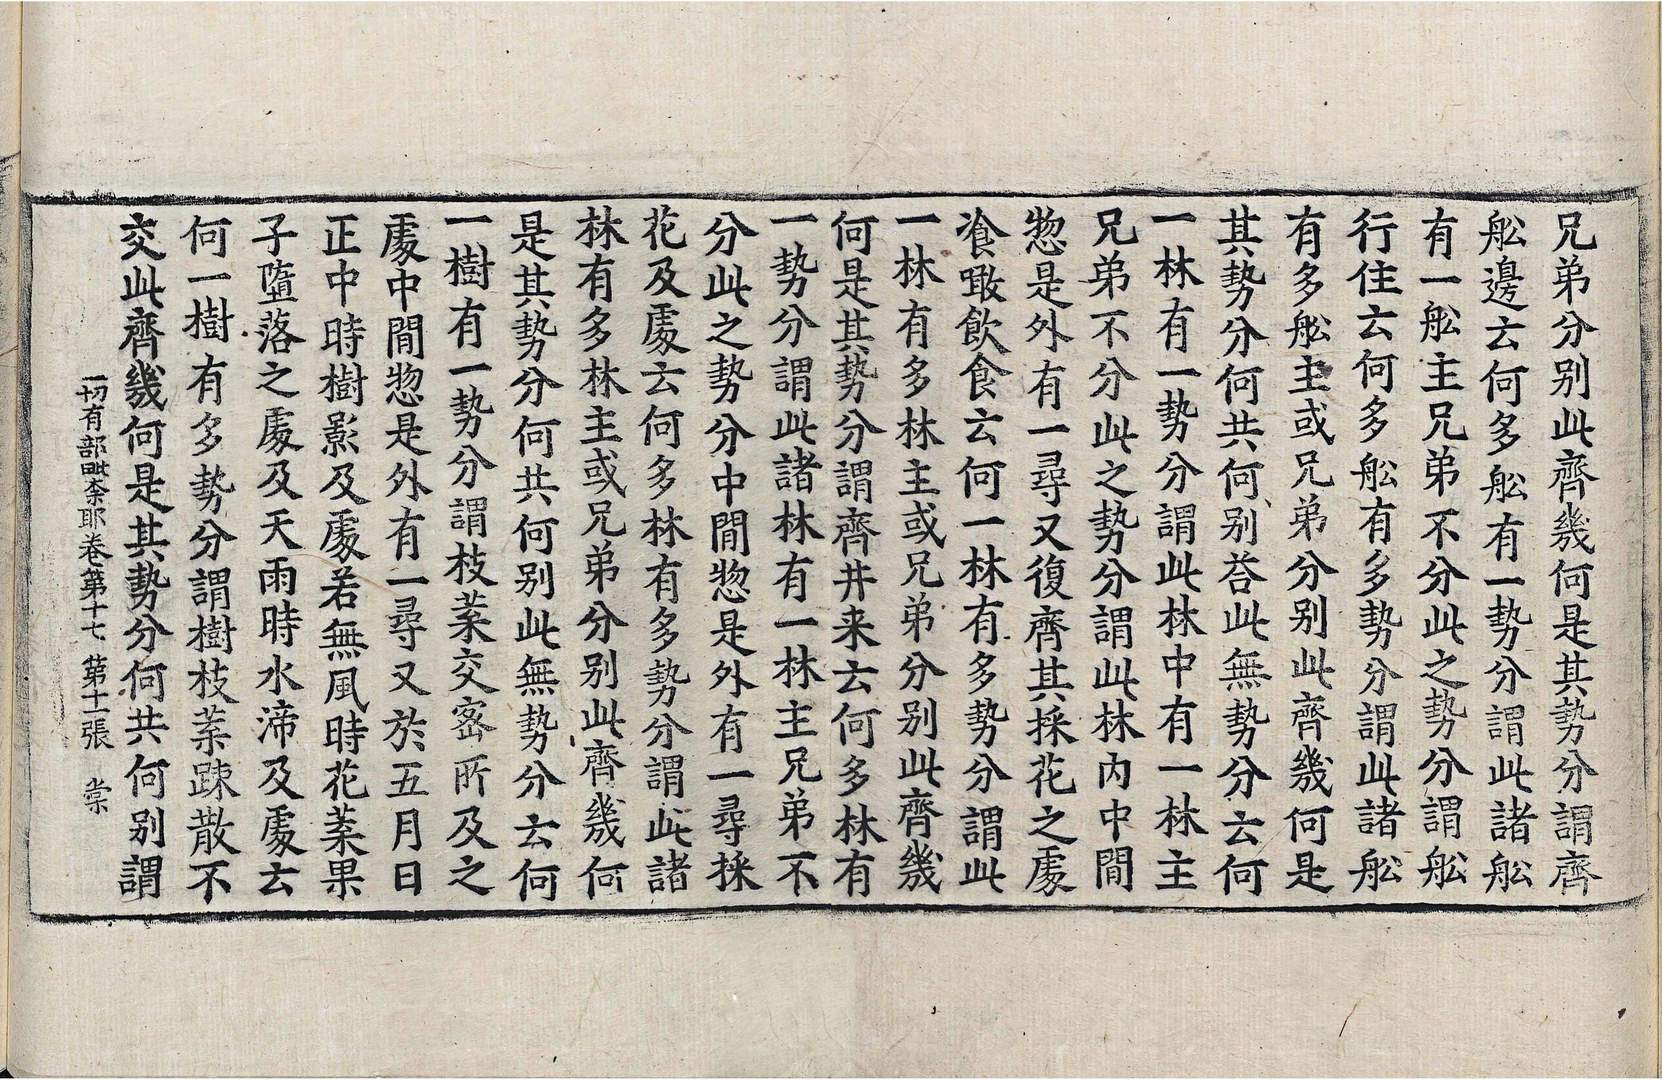 兄弟分別此齊幾何是其勢分謂齊
舩邊去何多舩有一勢分謂此諸舩
有一舩主兄弟不分此之勢分謂舩
行住云何多舩有多勢分謂此諸舩
有多舩主或兄弟分別此齊幾何是
其勢分何共何別答此無勢分云何
一林有一勢分謂此林中有一林主
兄弟不分此之勢分謂此林內中間
惣是外有一尋又復齊其採花之處
飡噉飲食云何一林有多勢分謂此
一林有多林主或兄弟分別此齊幾
何是其勢分謂齊井来云何多林有
一勢分謂此諸林有一林主兄弟不
分此之勢分中間惣是外有一尋採
花及處云何多林有多勢分謂此諸
林有多林主或兄弟分別此齊幾何
是其勢分何共何別此無勢分云何
一樹有一勢分謂枝葉交密所及之
處中間惣是外有一尋又於五月日
正中時樹影及處若無風時花葉果
子墮落之處及天雨時水渧及處云
何一樹有多勢分謂樹枝葉踈散不
交此齊幾何是其勢分何共何別謂
一切有部毗奈耶卷第十七 第十一張 棠